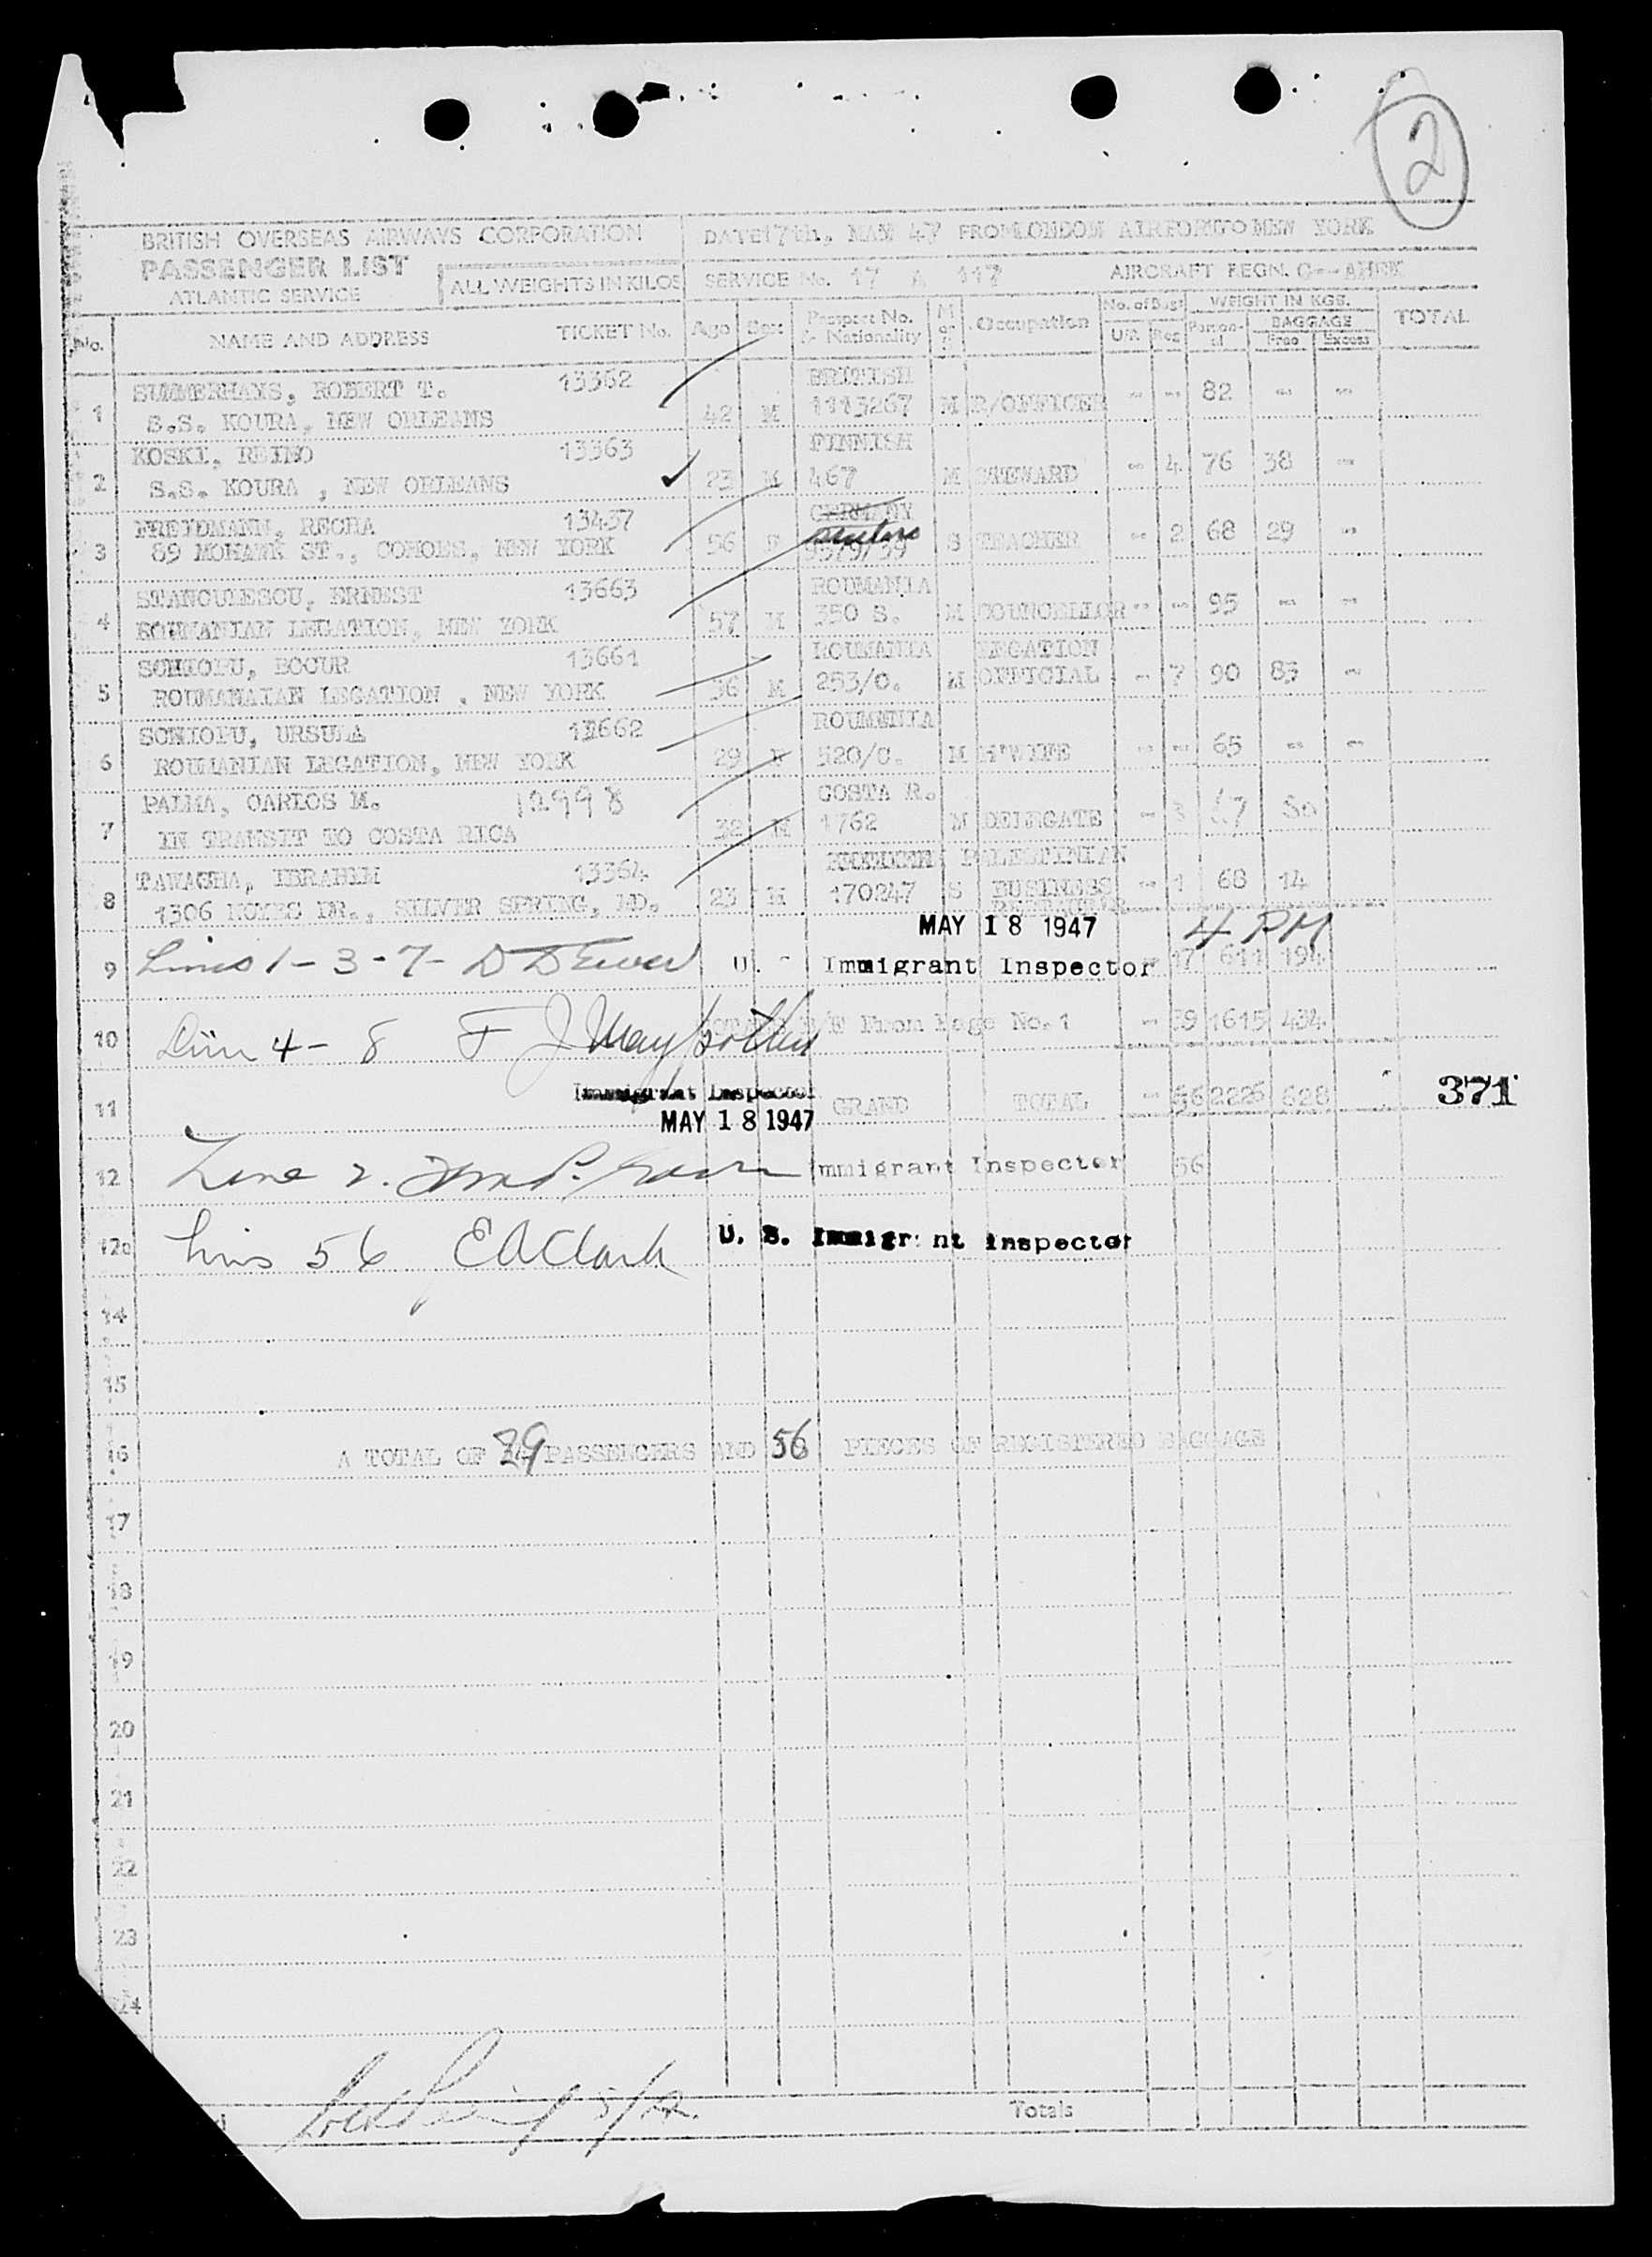 2
BRITISH OVERSEAS AIRWAYS CORPORATION DATE 17th. MAY 47 FROM LONDON AIRPORT TO NEW YORK
PASSENGER LIST ALL WEIGHTS IN KILOS SERVICE No. 17 A 117 AIRCRAFT REGN.
ATLANTIC SERVICE
No. NAME AND ADDRESS TICKET No. Age Sex Passport No. & Nationality M or S Occupation No. of Bags U/R Reg WEIGHT IN KGS. Person-al BAGGAGE Free Excess TOTAL
SUMMERHANS, ROBERT T. 13362 BRITISH
1 S.S. KOURA, NEW ORLEANS 42 M 1113267 M R/OFFICER - - 82 - -
KOSKI, REINO 13363 FINNISH
2 S.S. KOURA , NEW ORLEANS 23 M 467 M STEWARD - 4 76 38 -
FREIDMANN, RECHA 13437 GERMANY
3 89 MOHAWK ST., COHOES, NEW YORK 56 F S TEACHER - 2 68 29 -
STANCULESCU, ERNEST 13663 ROUMANIA
4 ROUMANIAN LEGATION, NEW YORK 57 M 350 S. M COUNCELLOR - - 95 - -
SCHIOPU, BOCUR 13661 ROUMANIA LEGATION
5 ROUMANAIAN LEGATION , NEW YORK 36 M 253/C. M OFFICIAL - 7 90 83 -
SCHIOPU, URSULA 13662 ROUMENIA
6 ROUMANIAN LEGATION, NEW YORK 29 F 520/C. M H'WIFE - - 65 - -
PALMA, CARLOS M. 12998 COSTA R.
7 IN TRANSIT TO COSTA RICA 32 M 1762 M DELEGATE - 3 67 30
TAWAGHA, IBRAHIM 13364 PALESTINIAN
8 1306 NOYES DR., SILVER SPRING, MD. 23 M 170247 S BUSINESS - 1 68 14
MAY 18 1947 4 PM
9 Lines 1-3-7- U. Immigrant Inspector 17 611 194
10 Line 4-8 F J From Page No. 1 - 39 1615 434
Immigrant Inspector
11 GRAND TOTAL - 56 2226 628 371
MAY 18 1947
12 Line 2. Immigrant Inspector 56
Lines 56 E A Clark U. S. Immigrant Inspector
14
15
16 A TOTAL OF 29 PASSENGERS AND 56 PIECES OF REGISTERED BAGGAGE
17
18
19
20
21
22
23
24
Totals